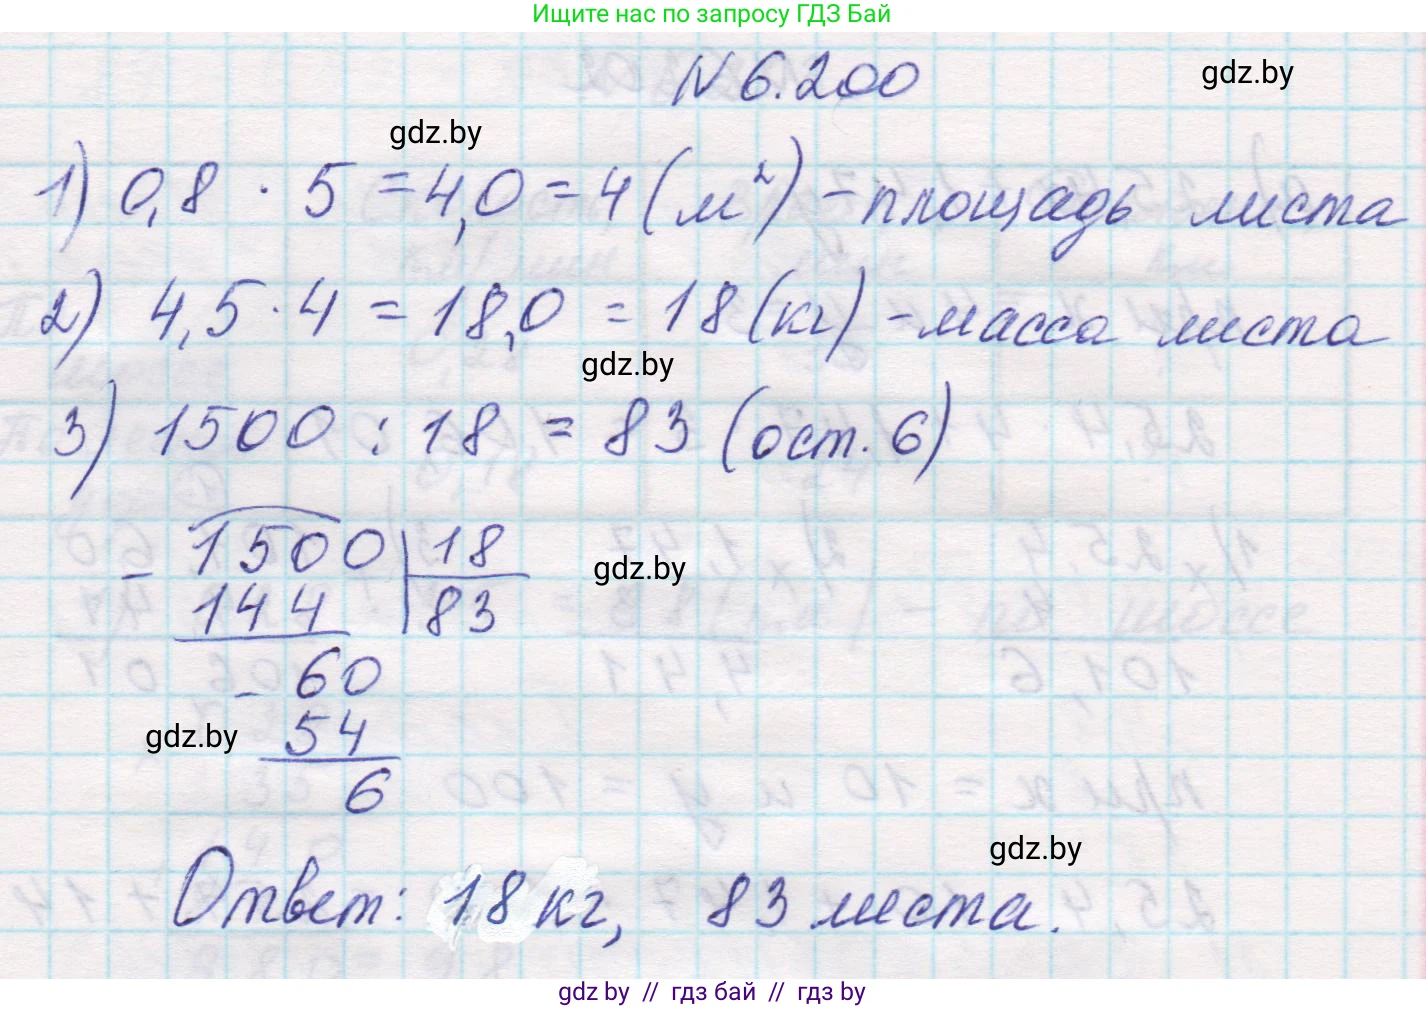 Ищите нас по запросу ГДЗ Бай
N 6.200
gdz.by
gdz.by
1) 0,8 · 5 = 4,0 = 4 (м²) - площадь листа
2) 4,5 · 4 = 18,0 = 18 (кг) - масса листа
gdz.by
3) 1500 : 18 = 83 (ост. 6)
- 1500 | 18
144 | 83
gdz.by
- 60
54
gdz.by
6
gdz.by
Ответ: 18 кг, 83 листа.
gdz by // гдз бай // гдз by